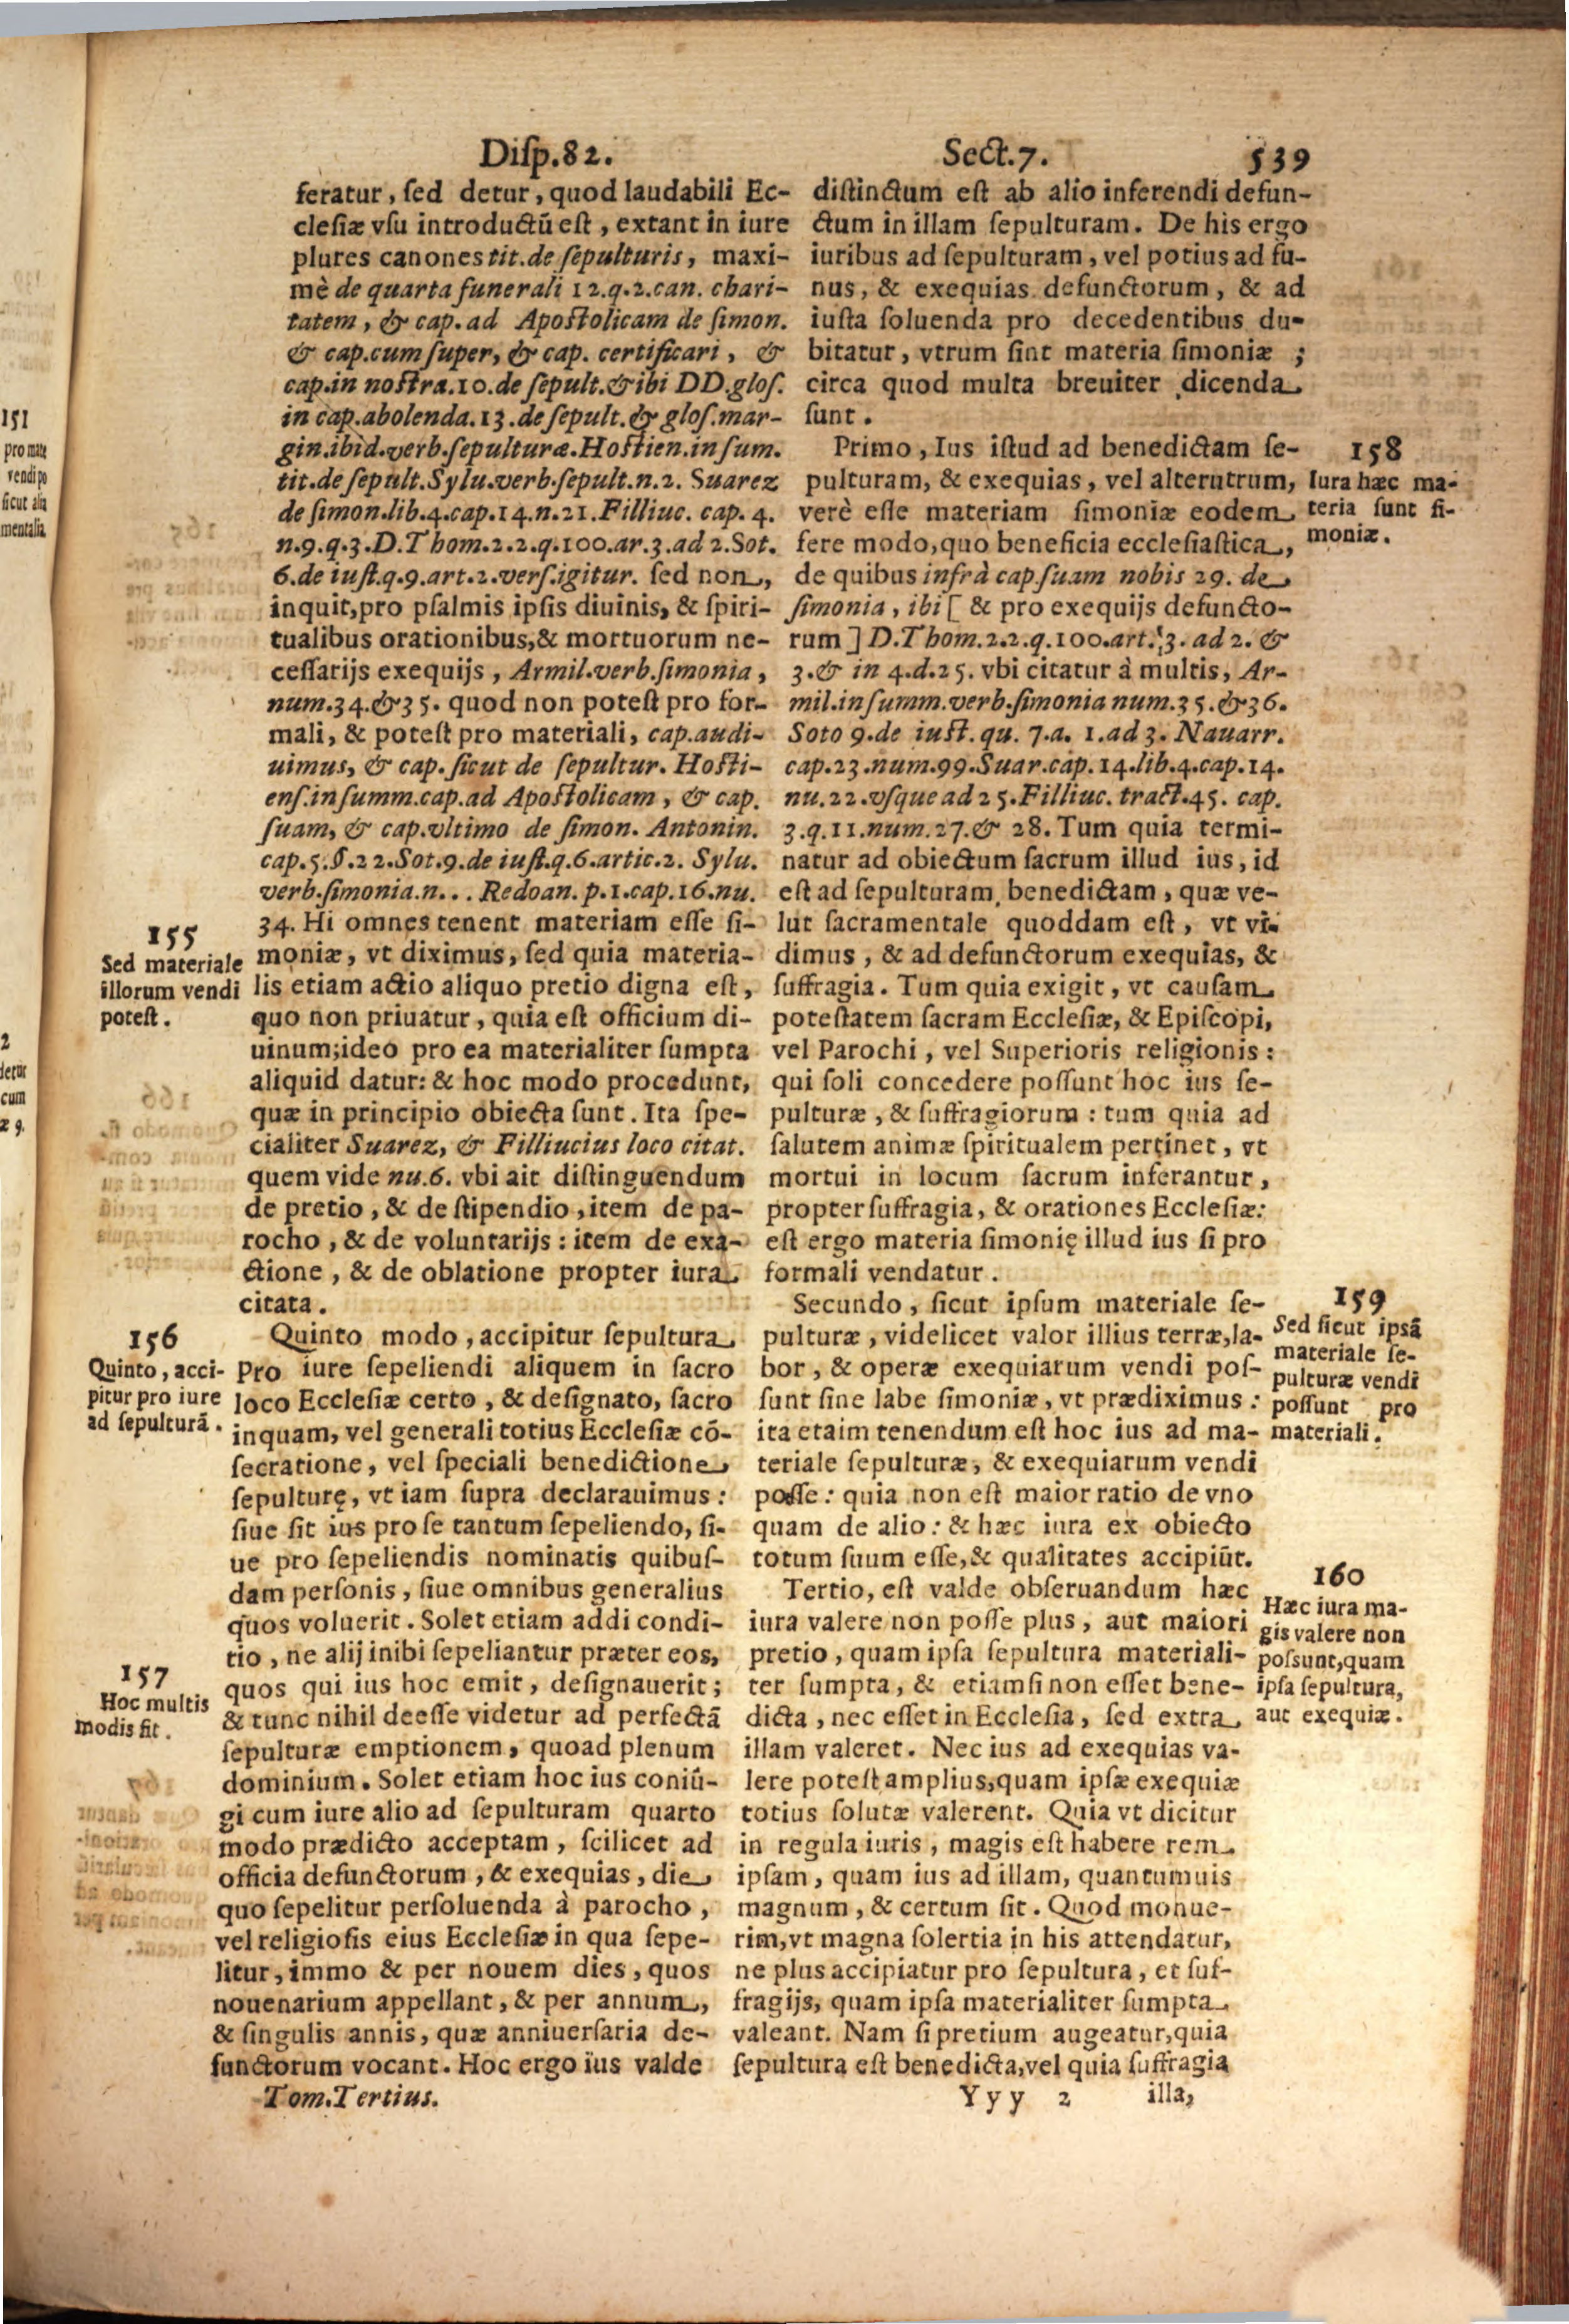 Disp.82. Sect.7. 539
feratur, sed detur, quod laudabili Ec-
clesiæ vsu introductũ est, extant in iure
plures canones tit.de sepulturis, maxi-
mè de quarta funerali 12.q.2.can. chari-
tatem, & cap.ad Apostolicam de simon.
& cap.cum super, & cap. certificari, &
cap.in nostra.10.de sepult.& ibi DD.glos.
in cap.abolenda.13.de sepult.& glos.mar-
gin.ibid.verb.sepulturæ.Hostien.in sum.
tit.de sepult.Sylu.verb.sepult.n.2. Suarez
de simon.lib.4.cap.14.n.21.Filliuc. cap. 4.
n.9.q.3.D.Thom.2.2.q.100.ar.3.ad 2.Sot.
6.de iust.q.9.art.2.vers.igitur. sed non,
inquit,pro psalmis ipsis diuinis, & spiri-
tualibus orationibus,& mortuorum ne-
cessarijs exequijs, Armil.verb.simonia,
num.34.&35. quod non potest pro for-
mali, & potest pro materiali, cap.audi-
uimus, & cap. sicut de sepultur. Hosti-
ens.in summ.cap.ad Apostolicam, & cap.
suam, & cap.vltimo de simon. Antonin.
cap.5.§.22.Sot.9.de iust.q.6.artic.2. Sylu.
verb.simonia.n... Redoan. p.1.cap.16.nu.
34. Hi omnes tenent materiam esse si-
moniæ, vt diximus, sed quia materia-
lis etiam actio aliquo pretio digna est,
quo non priuatur, quia est officium di-
uinum;ideo pro ea materialiter sumpta
aliquid datur: & hoc modo procedunt,
quæ in principio obiecta sunt. Ita spe-
cialiter Suarez, & Filliucius loco citat.
quem vide nu.6. vbi ait distinguendum
de pretio, & de stipendio, item de pa-
rocho, & de voluntarijs: item de exa-
ctione, & de oblatione propter iura
citata.
155
Sed materiale
illorum vendi
potest.
156
Quinto, acci-
pitur pro iure
ad sepulturã.
Quinto modo, accipitur sepultura
Pro iure sepeliendi aliquem in sacro
loco Ecclesiæ certo, & designato, sacro
inquam, vel generali totius Ecclesiæ cõ-
secratione, vel speciali benedictione
sepulturę, vt iam supra declarauimus:
siue sit ius pro se tantum sepeliendo, si-
ue pro sepeliendis nominatis quibus-
dam personis, siue omnibus generalius
quos voluerit. Solet etiam addi condi-
tio, ne alij inibi sepeliantur præter eos,
quos qui ius hoc emit, designauerit;
& tunc nihil deesse videtur ad perfectã
sepulturæ emptionem, quoad plenum
dominium. Solet etiam hoc ius coniũ-
gi cum iure alio ad sepulturam quarto
modo prædicto acceptam, scilicet ad
officia defunctorum, & exequias, die
quo sepelitur persoluenda à parocho,
vel religiosis eius Ecclesiæ in qua sepe-
litur, immo & per nouem dies, quos
nouenarium appellant, & per annum,
& singulis annis, quæ anniuersaria de-
functorum vocant. Hoc ergo ius valde
157
Hoc multis
modis fit.
Tom.Tertius.
distinctum est ab alio inferendi defun-
ctum in illam sepulturam. De his ergo
iuribus ad sepulturam, vel potius ad fu-
nus, & exequias defunctorum, & ad
iusta soluenda pro decedentibus du-
bitatur, vtrum sint materia simoniæ;
circa quod multa breuiter dicenda
sunt.
Primo, Ius istud ad benedictam se-
pulturam, & exequias, vel alterutrum,
verè esse materiam simoniæ eodem
fere modo,quo beneficia ecclesiastica,
de quibus infrà cap.suam nobis 29. de
simonia, ibi [ & pro exequijs defuncto-
rum ] D.Thom.2.2.q.100.art.3. ad 2. &
3.& in 4.d.25. vbi citatur à multis, Ar-
mil.in summ.verb.simonia num.35.&36.
Soto 9.de iust. qu. 7.a. 1.ad 3. Nauarr.
cap.23.num.99.Suar.cap.14.lib.4.cap.14.
nu.22.vsque ad 25.Filliuc. tract.45. cap.
3.q.11.num.27.& 28. Tum quia termi-
natur ad obiectum sacrum illud ius, id
est ad sepulturam benedictam, quæ ve-
lut sacramentale quoddam est, vt vi-
dimus, & ad defunctorum exequias, &
suffragia. Tum quia exigit, vt causam
potestatem sacram Ecclesiæ, & Episcopi,
vel Parochi, vel Superioris religionis:
qui soli concedere possunt hoc ius se-
pulturæ, & suffragiorum: tum quia ad
salutem animæ spiritualem pertinet, vt
mortui in locum sacrum inferantur,
propter suffragia, & orationes Ecclesiæ:
est ergo materia simonię illud ius si pro
formali vendatur.
158
Iura hæc ma-
teria sunt si-
moniæ.
Secundo, sicut ipsum materiale se-
pulturæ, videlicet valor illius terræ,la-
bor, & operæ exequiarum vendi pos-
sunt sine labe simoniæ, vt prædiximus:
ita etaim tenendum est hoc ius ad ma-
teriale sepulturæ, & exequiarum vendi
posse: quia non est maior ratio de vno
quam de alio: & hæc iura ex obiecto
totum suum esse,& qualitates accipiũt.
159
Sed sicut ipsã
materiale se-
pulturæ vendi
possunt pro
materiali.
Tertio, est valde obseruandum hæc
iura valere non posse plus, aut maiori
pretio, quam ipsa sepultura materiali-
ter sumpta, & etiamsi non esset bene-
dicta, nec esset in Ecclesia, sed extra
illam valeret. Nec ius ad exequias va-
lere potest amplius,quam ipsæ exequiæ
totius solutæ valerent. Quia vt dicitur
in regula iuris, magis est habere rem
ipsam, quam ius ad illam, quantumuis
magnum, & certum sit. Quod monue-
rim,vt magna solertia in his attendatur,
ne plus accipiatur pro sepultura, et suf-
fragijs, quam ipsa materialiter sumpta
valeant. Nam si pretium augeatur,quia
sepultura est benedicta,vel quia suffragia
160
Hæc iura ma-
gis valere non
possunt,quam
ipsa sepultura,
aut exequiæ.
Yyy 2 illa,
151
pro mate
vendi po
sicut alia
mentalia
2
detur
cum